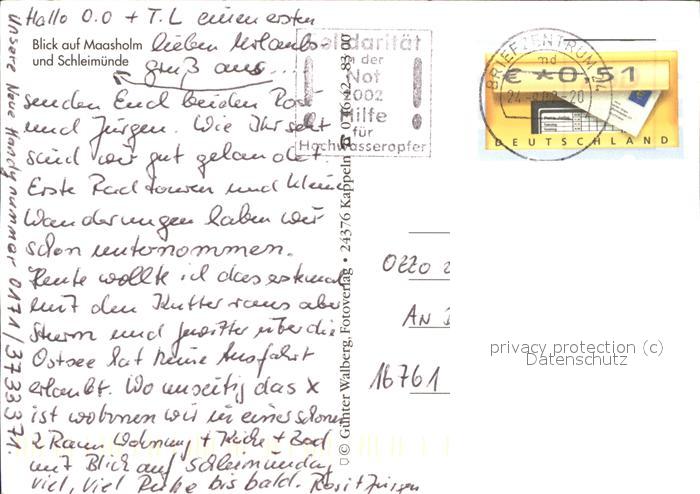 Hallo O.O + T.L einen ersten
Blick auf Maasholm
und Schleimünde
lieben Urlaubs-
gruß aus...
senden Euch beiden Rosi
und Jürgen. Wie Ihr seht
sind wir gut gelandet.
Erste Radtouren und kleine
Wanderungen haben wir
schon unternommen.
Heute wollte ich das erstemal
mit den Kutter raus aber
Sturm und Gewitter über die
Ostsee hat keine Ausfahrt
erlaubt. Wo unseitig das X
ist wohnen wir in einer schönen
2 Raum Wohnung + Küche + Bad
mit Blick auf Schleimündung
viel, viel Ruhe bis bald. Rosi + Jürgen
Unsere Neue Handynummer 0171/3733371.
Solidarität
in der
Not
2002
Hilfe
für
Hochwasseropfer
BRIEFZENTRUM 24
md
24.-8.02-20
€ *0,51
DEUTSCHLAND
© Günter Walberg, Fotoverlag • 24376 Kappeln ☎ 0 46 42 - 83 00
Otto
An
16761
privacy protection (c)
Datenschutz